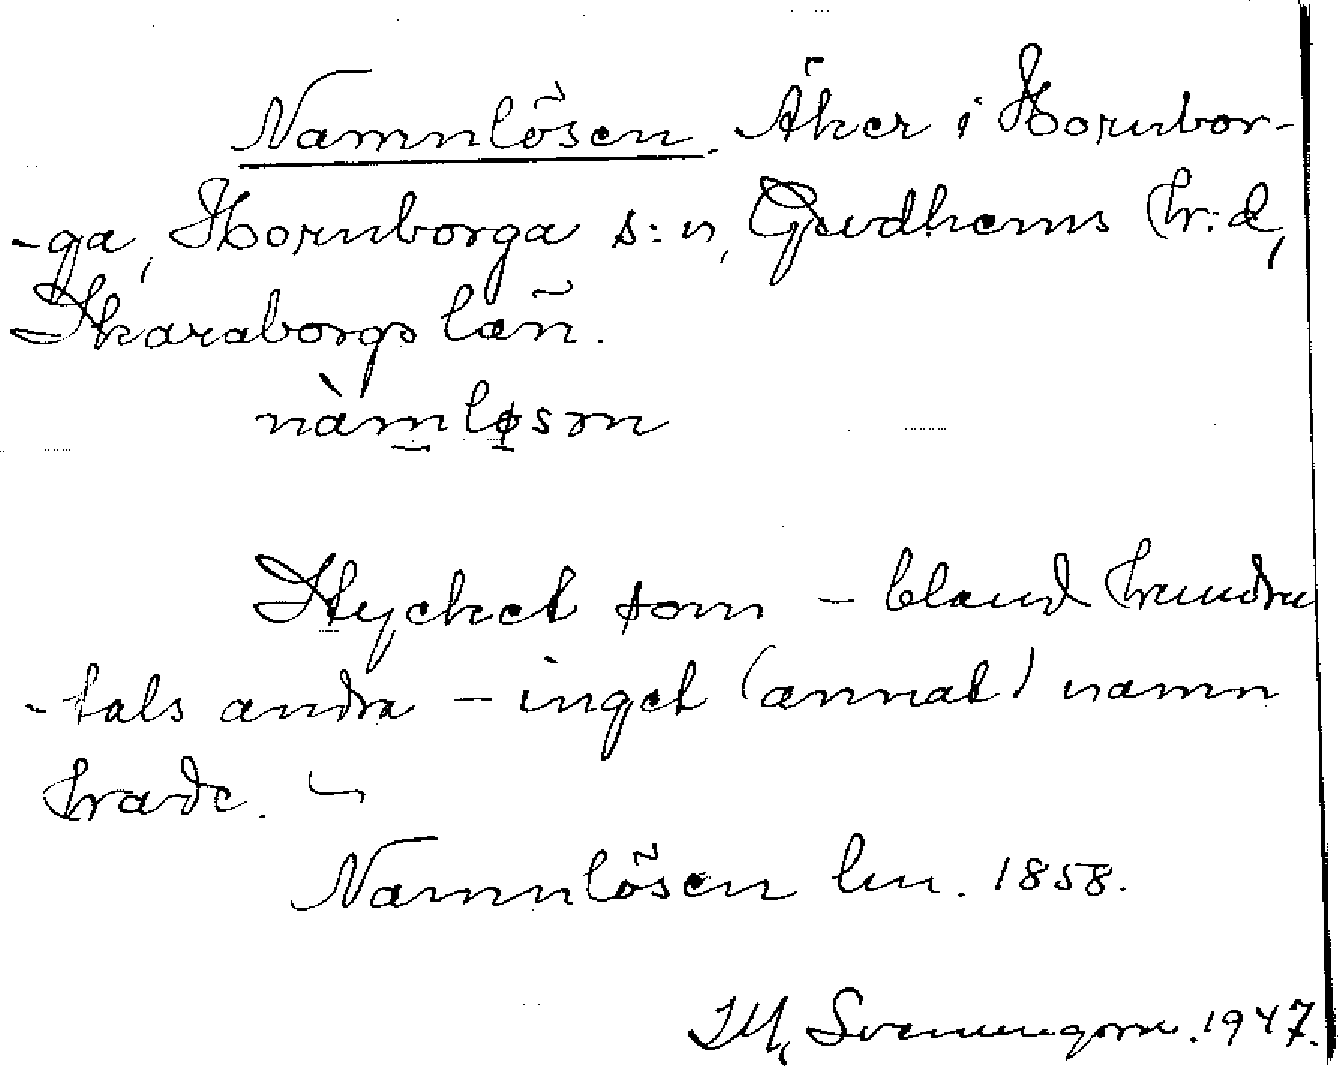 Namnlösen. Åker i Hornbor-
-ga, Hornborga s:n, Gudhems hr:d,
Skaraborgs län.
nàmløsən
Stycket som – bland hundra
-tals andra – inget (annat) namn
hade. –
Namnlösen lm. 1858.
Svenungson. 1947.